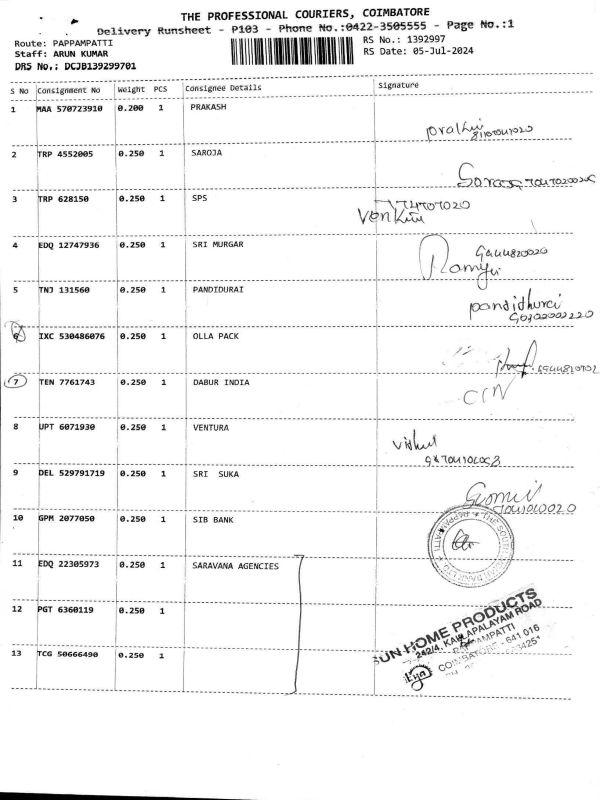 THE PROFESSIONAL COURIERS, COIMBATORE
Delivery Runsheet - P103 - Phone No.:0422-3505555 - Page No.:1
Route: PAPPAMPATTI
RS No.: 1392997
Staff: ARUN KUMAR
RS Date: 05-Jul-2024
DRS No.: DCJB139299701
S No Consignment No Weight PCS Consignee Details Signature
1 MAA 570723910 0.200 1 PRAKASH
2 TRP 4552005 0.250 1 SAROJA
3 TRP 628150 0.250 1 SPS
4 EDQ 12747936 0.250 1 SRI MURGAR
Ramya
5 TNJ 131560 0.250 1 PANDIDURAI
pandidhurai
6 IXC 530486076 0.250 1 OLLA PACK
7 TEN 7761743 0.250 1 DABUR INDIA
8 UPT 6071930 0.250 1 VENTURA
9 DEL 529791719 0.250 1 SRI SUKA
10 GPM 2077050 0.250 1 SIB BANK
11 EDQ 22305973 0.250 1 SARAVANA AGENCIES
12 PGT 6360119 0.250 1
13 TCG 50666490 0.250 1
SUN HOME PRODUCTS
242/4, KALLAPALAYAM ROAD
PAPPAMPATTI
COIMBATORE - 641 016